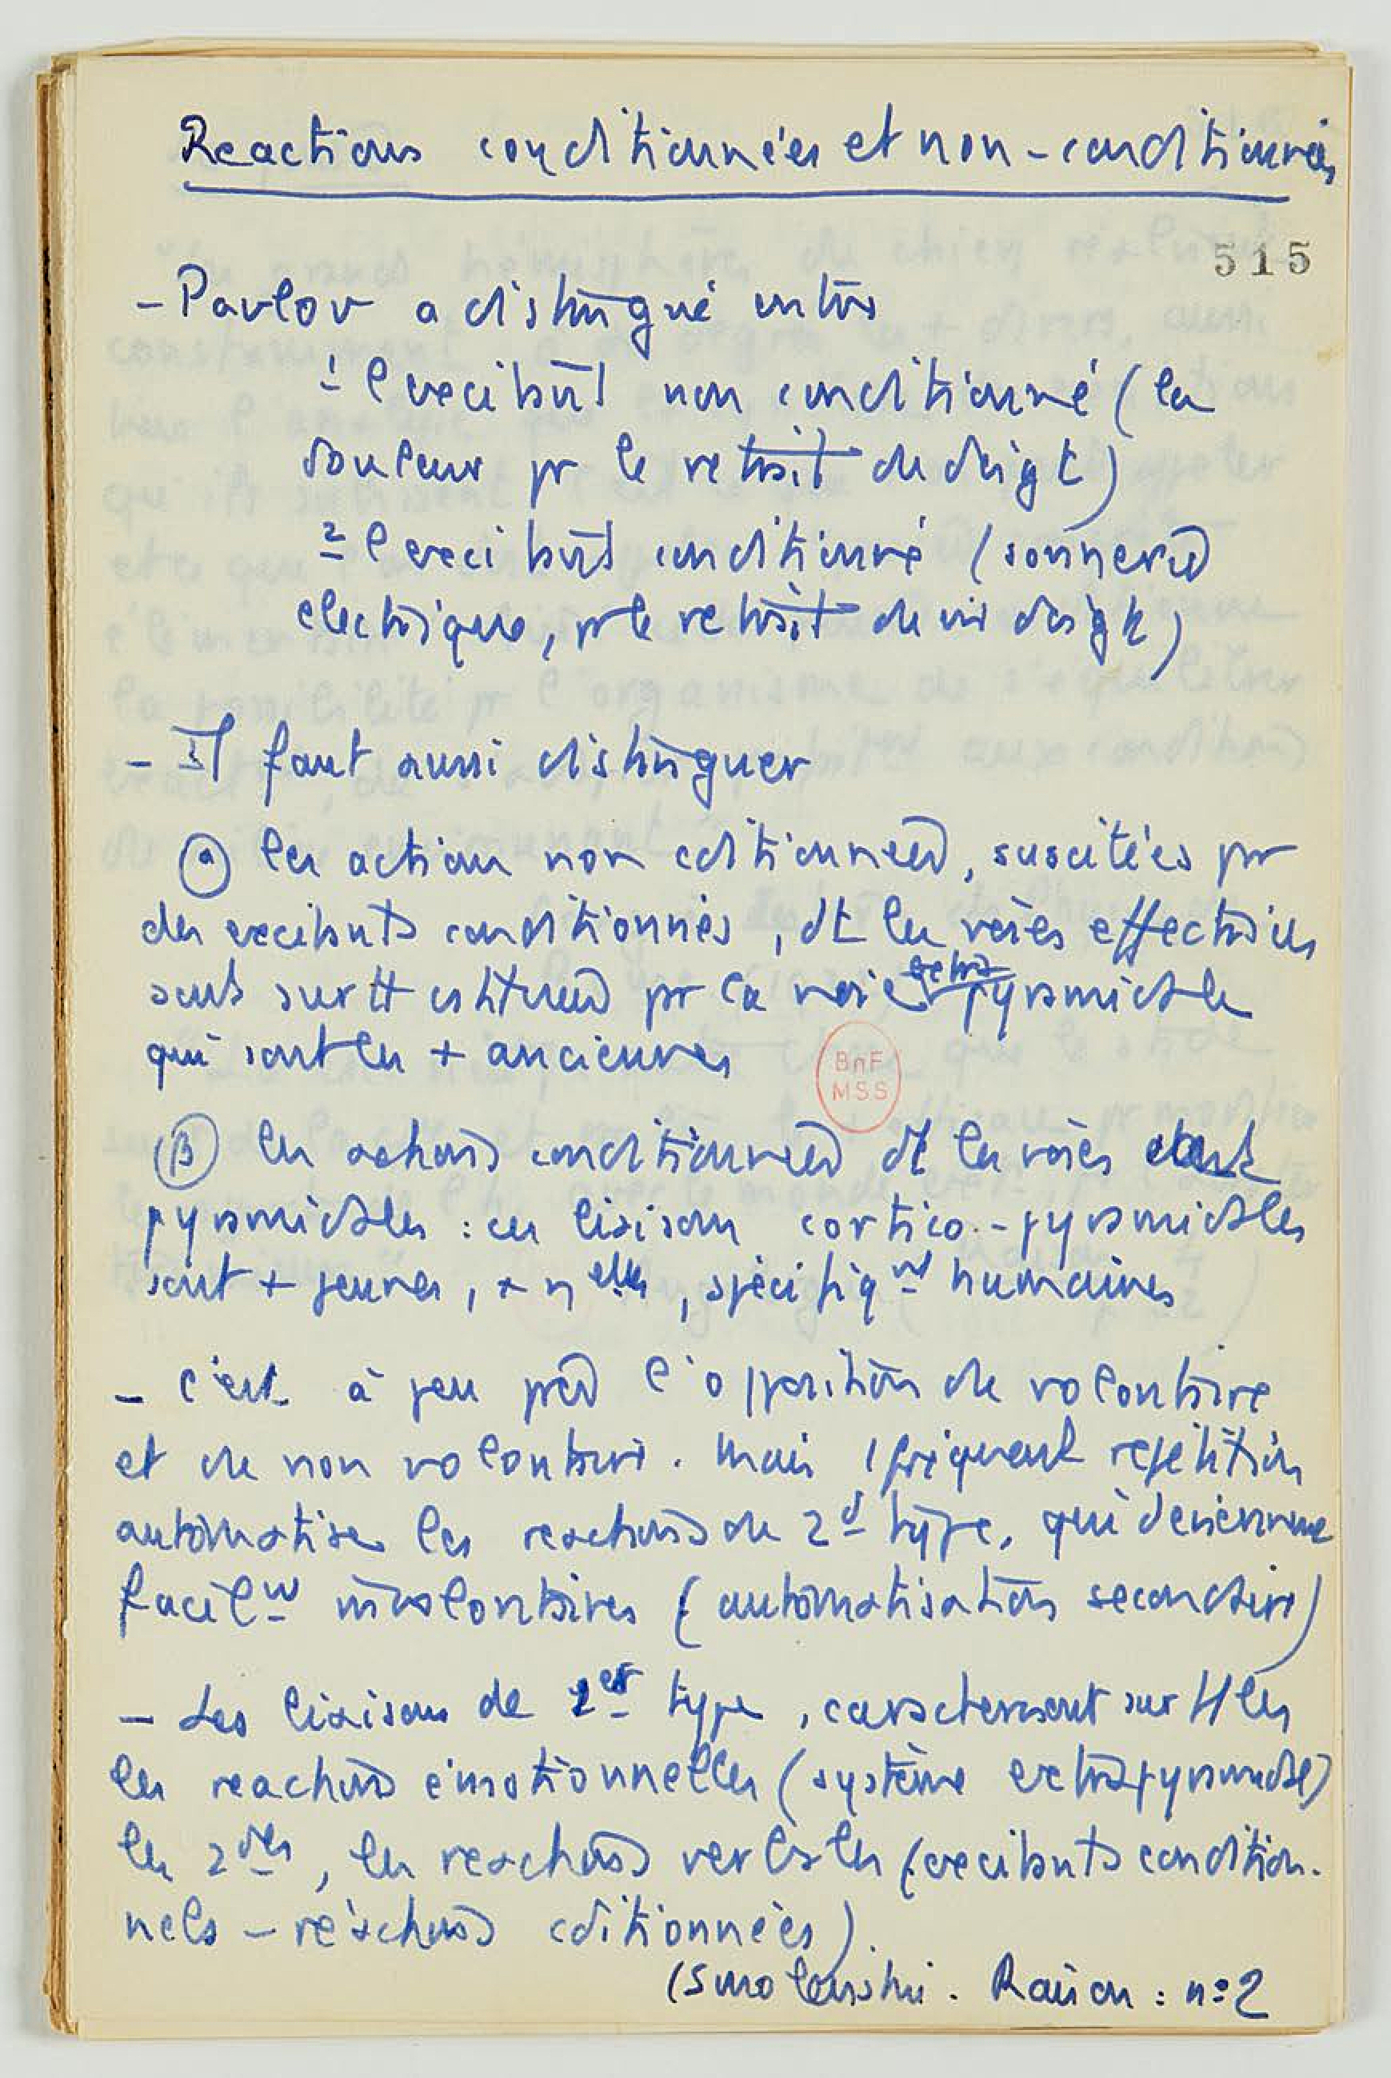 Reactions conditionnées et non-conditionnées
515
- Pavlov a distingué entre
1 l'excitant non conditionné (la
douleur pr le retrait du doigt)
2 l'excitant conditionné (sonnerie
electrique, pr le retrait du doigt)
- Il faut aussi distinguer
(a) les action non cditionnées, suscitées pr
des excitants conditionnés, dt les voies effectrices
sont surtt cstituées pr la voie extrapyramidale
qui sont les + anciennes
(B) les actions conditionnées dt les voies
pyramidales : ces liaisons cortico-pyramidales
sont + jeunes, + n elles, spécifiqnt humaines
- C'est à peu près l'opposition du volontaire
et du non volontaire. Mais fréquent répétition
automatise les reactions du 2d type, qui deviennent
facilnt involontaires (automatisation secondaire)
- Les liaisons de 1er type, caracterisent surtt les
les reactions émotionnelles (système extrapyramidal)
les 2des, les reactions verbales (excitants condition-
nels - réactions cditionnées).
(Smolenski. Raison : n° 2
BnF
MSS